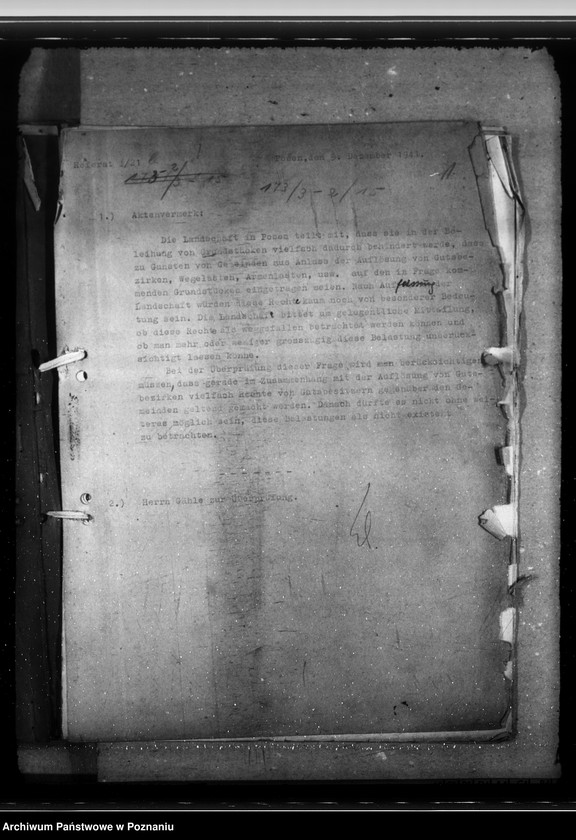 Referat I/21
Posen, den 9. Dezember 1941.
173/3-2/15
1.) Aktenvermerk:
Die Landschaft in Posen teilt mit, dass sie in der Be-
leihung von Grundstücken vielfach dadurch behindert werde, dass
zu Gunsten von Gemeinden aus Anlass der Auflösung von Gutsbe-
zirken, Wegelasten, Armenlasten, usw. auf den in Frage kom-
menden Grundstücken eingetragen seien. Nach Auffassung der
Landschaft würden diese Rechte kaum noch von besonderer Bedeu-
tung sein. Die Landschaft bittet um gelegentliche Mitteilung,
ob diese Rechte als weggefallen betrachtet werden können und
ob man mehr oder weniger grosszügig diese Belastung unberück-
sichtigt lassen könne.
Bei der Überprüfung dieser Frage wird man berücksichtigen
müssen, dass gerade im Zusammenhang mit der Auflösung von Guts-
bezirken vielfach Rechte von Gutsbesitzern gegenüber den Ge-
meinden geltend gemacht werden. Danach dürfte es nicht ohne wei-
teres möglich sein, diese Belastungen als nicht existent
zu betrachten.
2.) Herrn zur Überprüfung.
Archiwum Państwowe w Poznaniu